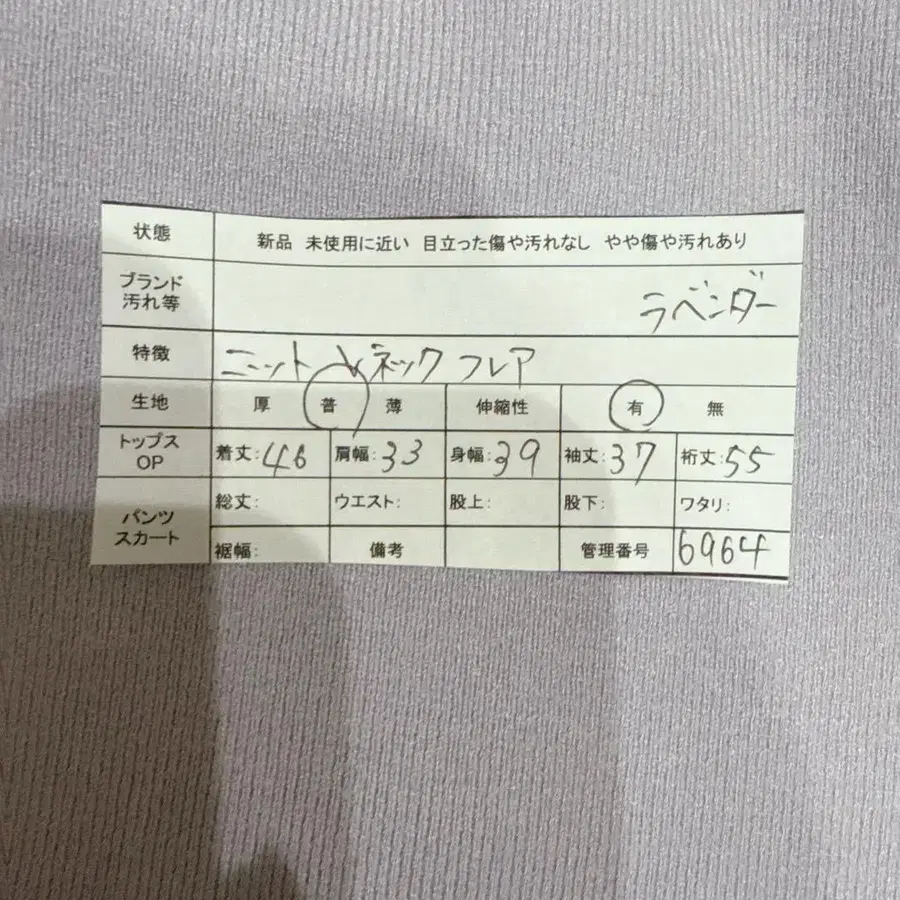 状態 新品 未使用に近い 目立った傷や汚れなし やや傷や汚れあり
ブランド
汚れ等 ラベンダー
特徴 ニット Vネック フレア
生地 厚 普 薄 伸縮性 有 無
トップス
OP 着丈:46 肩幅:33 身幅:39 袖丈:37 裄丈:55
パンツ
スカート 総丈: ウエスト: 股上: 股下: ワタリ:
裾幅: 備考 管理番号 6964